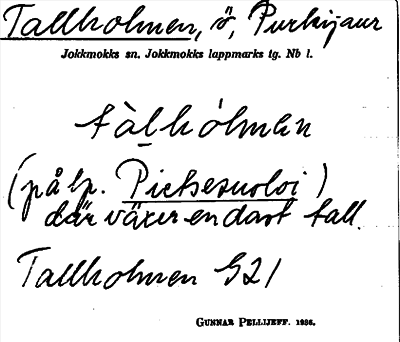 Tallholmen, ö, Purkijaur
Jokkmokks sn. Jokkmokks lappmarks tg. Nb l.
tàlhólmen
(på lp. Pietsesuoloi)
där växer endast tall.
Tallholmen G21
GUNNAR PELLIJEFF. 1936.